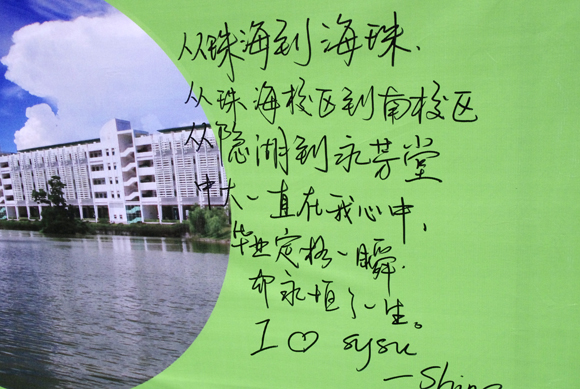 从珠海到海珠.
从珠海校区到南校区
从隐湖到永芳堂
中大一直在我心中,
毕业定格一瞬.
却永恒了一生。
I ♡ sysu